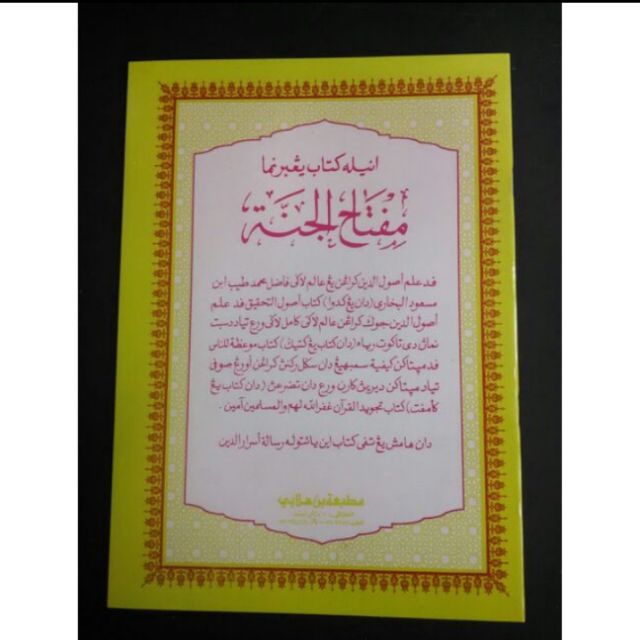 انيله كتاب يڠبرنما
مفتاح الجنّة
فد علم أصول الدين كراغن يڠ عالم لاڬي فاضل محمد طيب ابن
مسعود البخاري (دان يڠ كدوا) كتاب أصول التحقيق فد علم
أصول الدين جوڬ كراغن عالم لاڬي كامل لاڬي ورع تياد دسبت
نماڽ دى تاكوت رياء (دان كتاب يڠ كتيڬ) كتاب موعظة للناس
فد مڽتاكن كيفية سمبهيڠ دان سكل ركنڽ كراغن أورڠ صوفي
تياد مڽتاكن ديريڽ كارن ورع دان تضرعڽ (دان كتاب يڠ
كأمفت) كتاب تجويد القرآن غفر الله لهم والمسلمين آمين .
دان هامش يڠ تفي كتاب اين ياءتوله رسالة أسرار الدين
مطبعة بن هلابي